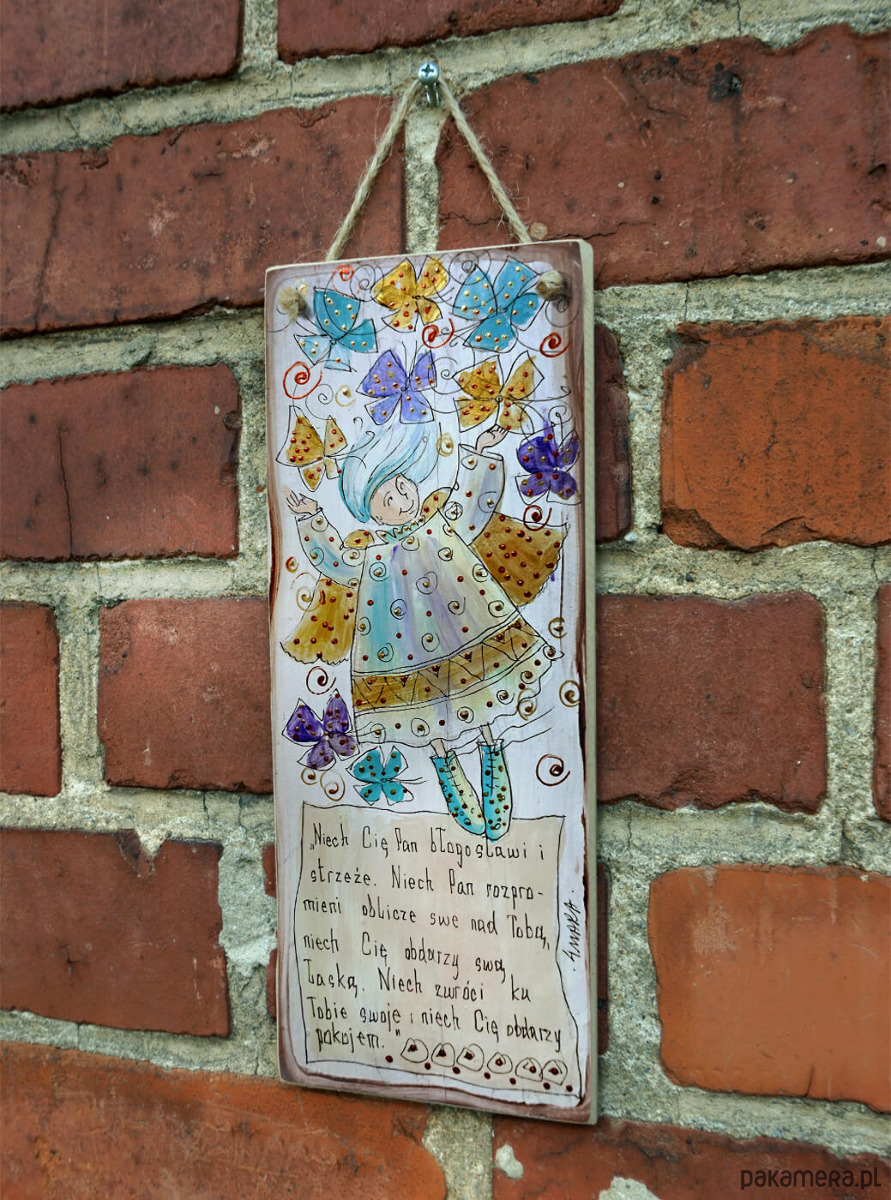 „Niech Cię Pan błogosławi i
strzeże. Niech Pan rozpro-
mieni oblicze swe nad Tobą,
niech Cię obdarzy swą
Łaską. Niech zwróci ku
Tobie swoje i niech Cię obdarzy
pokojem."
pakamera.pl